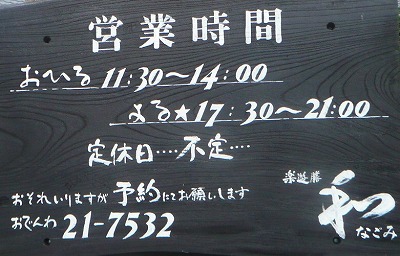 営業時間
おひる 11:30〜14:00
よる★17:30〜21:00
定休日‥‥不定‥‥
おそれいりますが 予約にてお願いします
おでんわ 21-7532
楽遊膳
和
なごみ